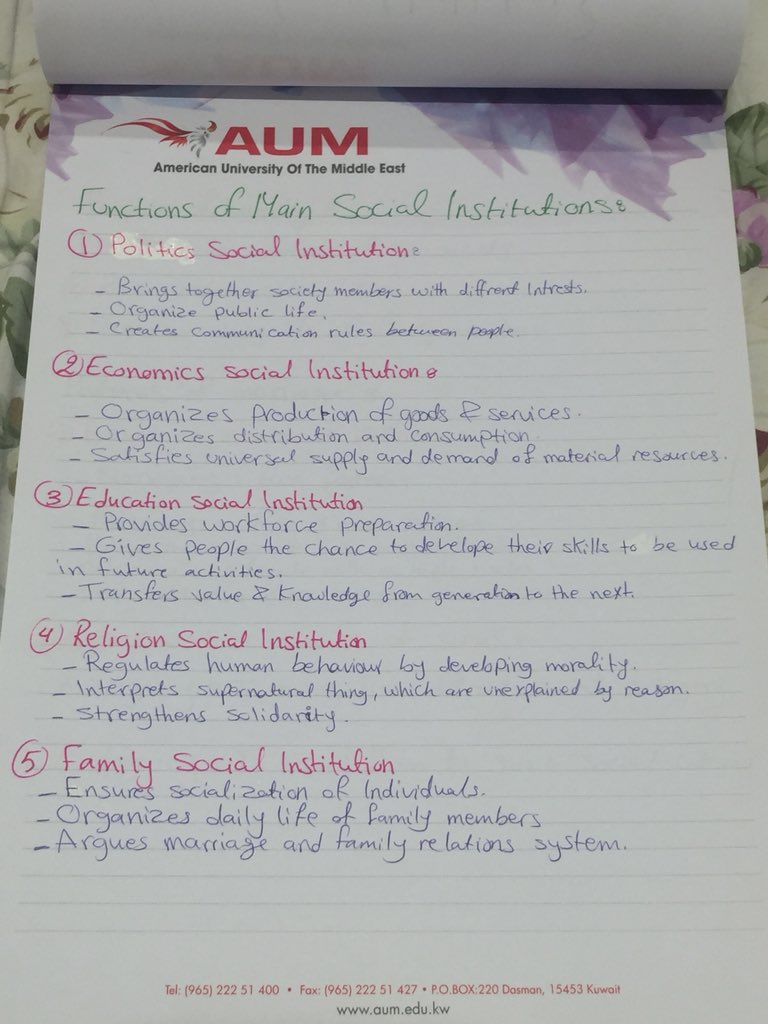 AUM
American University Of The Middle East
Functions of Main Social Institutions:
① Politics Social Institution:
- Brings together society members with diffrent Intrests.
- Organize public life.
- Creates communication rules between people.
② Economics social Institution:
- Organizes production of goods & services.
- Organizes distribution and consumption.
- Satisfies universal supply and demand of material resources.
③ Education Social Institution
- Provides workforce preparation.
- Gives people the chance to develope their skills to be used
in future activities.
- Transfers value & Knowledge from generation to the next.
④ Religion Social Institution
- Regulates human behaviour by developing morality.
- Interprets supernatural thing, which are unexplained by reason.
- Strengthens solidarity.
⑤ Family Social Institution
- Ensures socialization of Individuals.
- Organizes daily life of family members
- Argues marriage and family relations system.
Tel: (965) 222 51 400 • Fax: (965) 222 51 427 • P.O.BOX:220 Dasman, 15453 Kuwait
www.aum.edu.kw